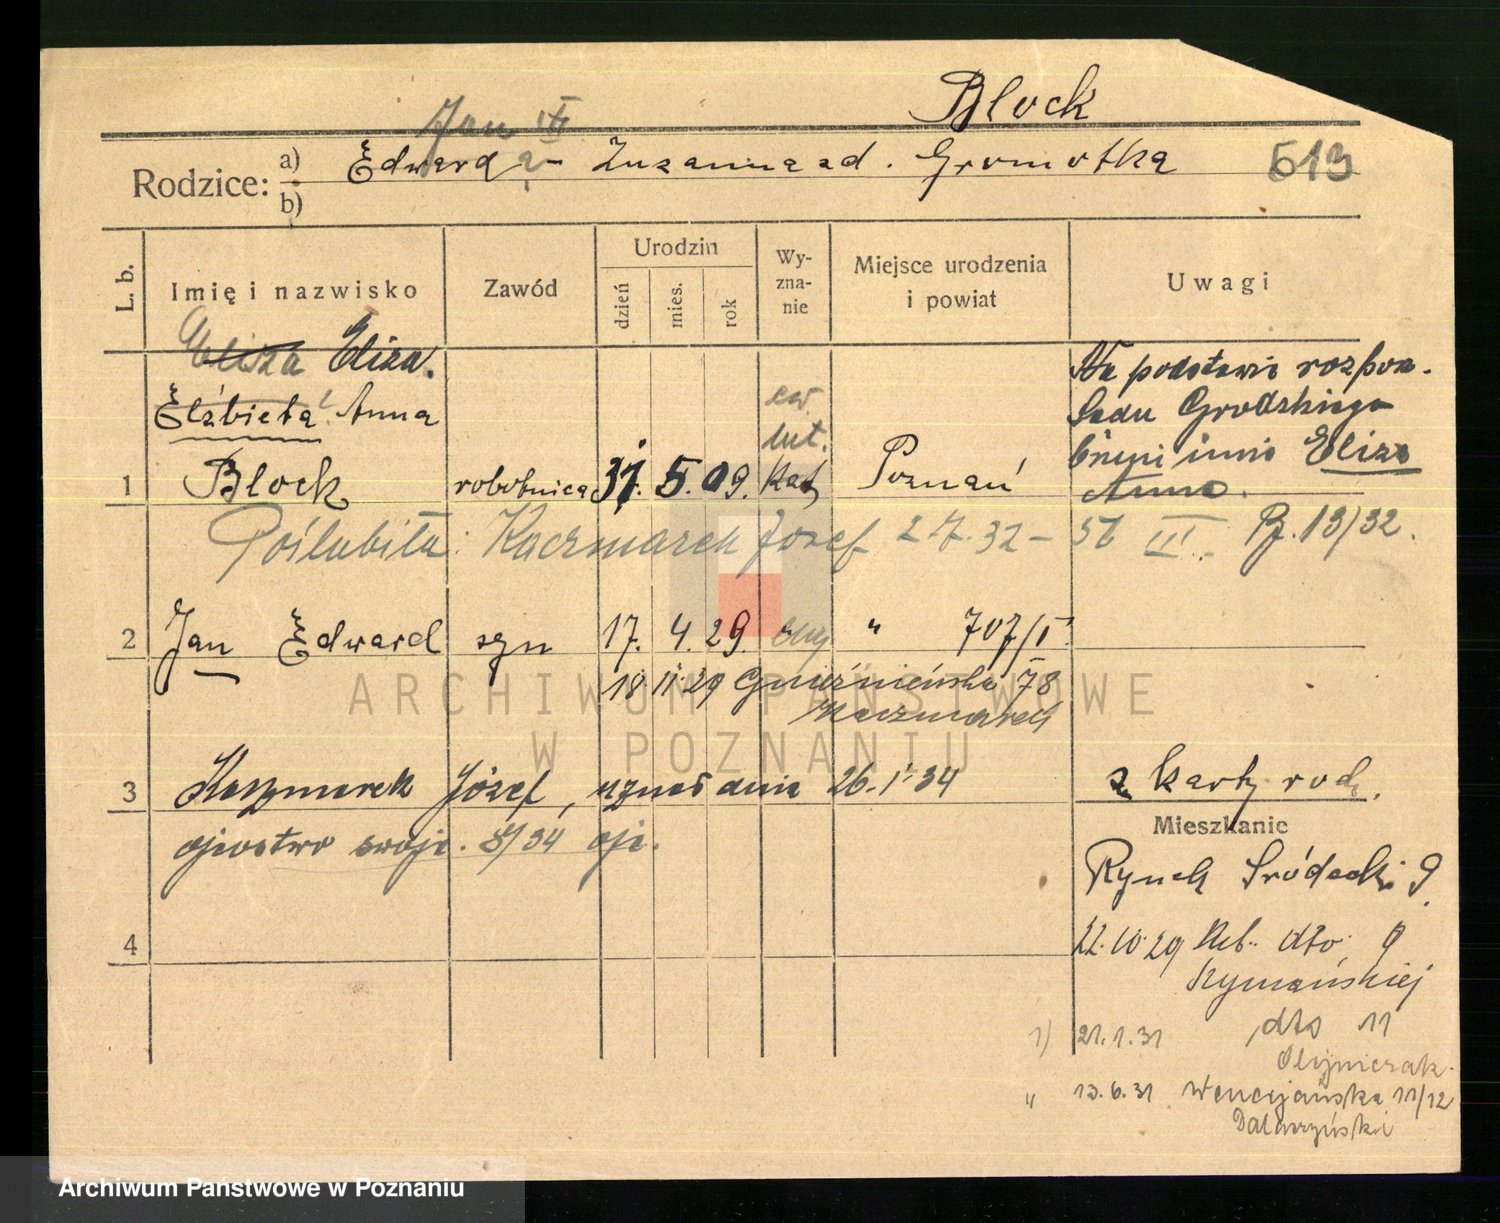 Block
Jan
Rodzice: a) Edward - Zuzanna zd. Gromotka 513
b)
L. b. Imię i nazwisko Zawód Urodzin dzień mies. rok Wyznanie Miejsce urodzenia i powiat Uwagi
Eliza Eliza.
Elżbieta Anna
ew. lut.
1 Block robotnica 31. 5. 09. Kat. Poznań
Na podstawie rozpor.
Sadu Grodzkiego
brzmi imię Eliza
Anna.
Poślubiła: Kaczmarek Józef 2.7.32 - St III. 13/32.
2 Jan Edward syn 17. 4. 29. " 707/I
18 11 29 Gnieźnieńska 78
Kaczmarek
3 Kaczmarek Józef, uznał dnia 26.1.34
ojcostwo swoje. 34
z karty rodz.
Mieszkanie
Rynek Śródecki 9.
22.10.29 dto. 9
Szymańskiej
1) 21.1.31 dto 11
Olejniczak
4
" 13.6.31 Wenecjańska 11/12
ARCHIWUM PAŃSTWOWE
W POZNANIU
Archiwum Państwowe w Poznaniu